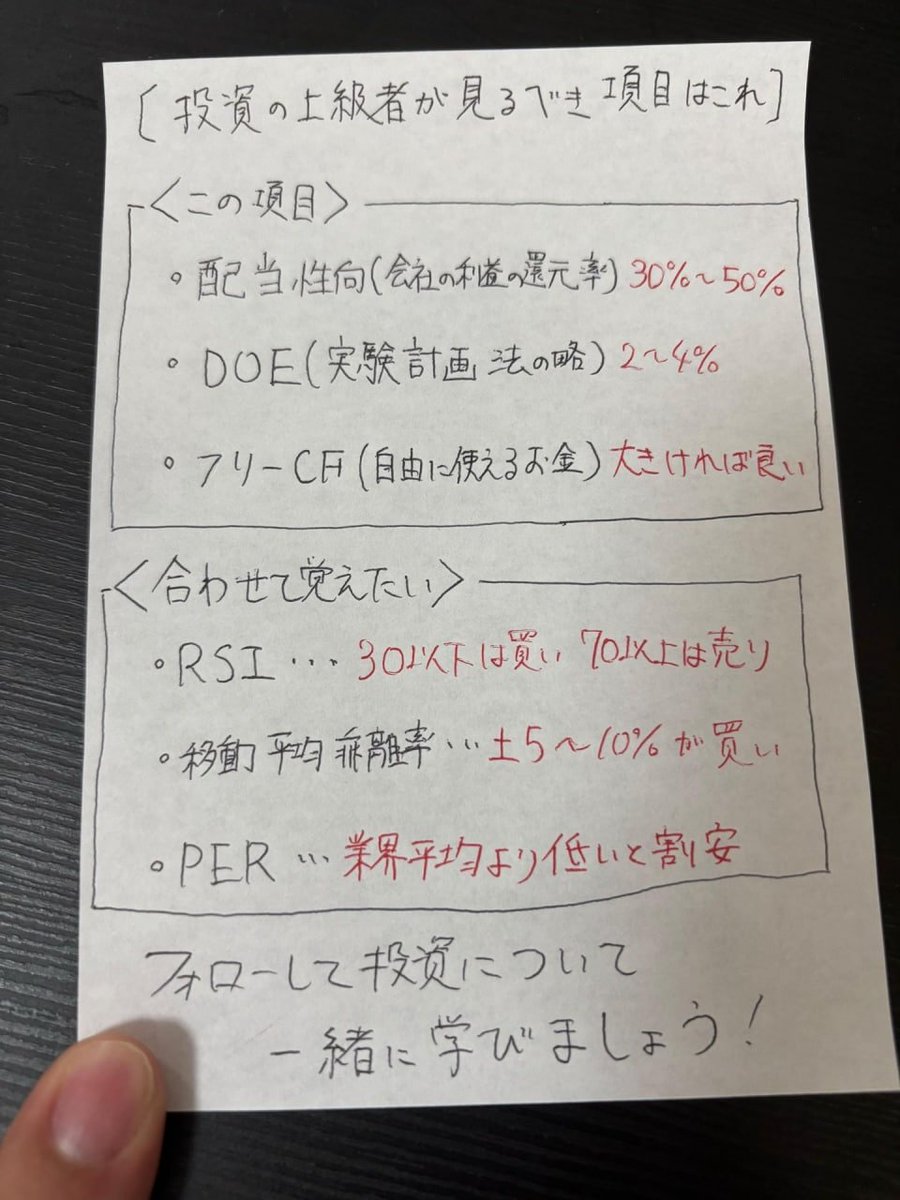 [投資の上級者が見るべき項目はこれ]
〈この項目〉
・配当性向(会社の利益の還元率) 30%〜50%
・DOE(実験計画法の略) 2〜4%
・フリーCF(自由に使えるお金) 大きければ良い
〈合わせて覚えたい〉
・RSI… 30以下は買い 70以上は売り
・移動平均乖離率…±5〜10%が買い
・PER…業界平均より低いと割安
フォローして投資について
一緒に学びましょう!